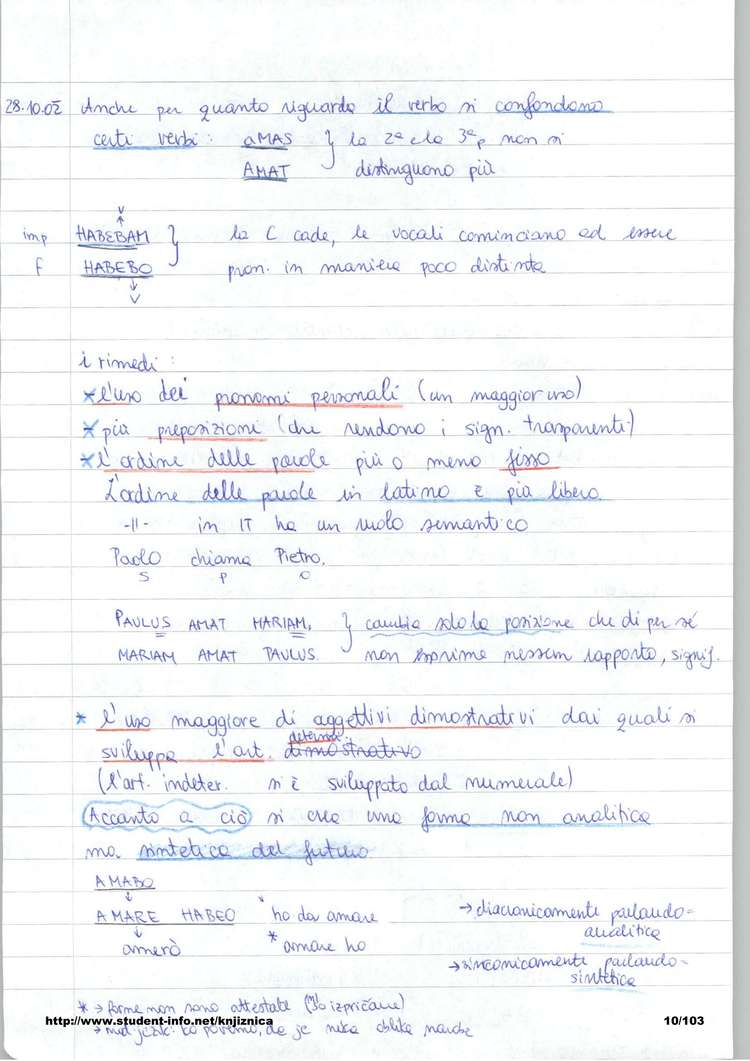 28.10.02 Anche per quanto riguarda il verbo si confondono
certi verbi: AMAS } la 2ª e la 3ª p non si
AMAT distinguono più
V
↑
imp HABEBAM } la C cade, le vocali cominciano ad essere
f HABEBO pron. in maniera poco distinta
↓
V
i rimedi:
* l'uso dei pronomi personali (un maggior uso)
* più preposizioni (che rendono i sign. trasparenti)
* l'ordine delle parole più o meno fisso
L'ordine delle parole in latino è più libero
-||- in IT ha un ruolo semantico
Paolo chiama Pietro.
S P O
PAULUS AMAT MARIAM. } cambia solo la posizione che di per sé
MARIAM AMAT PAULUS. non esprime nessun rapporto, signif.
* l'uso maggiore di aggettivi dimostrativi dai quali si
determi.
sviluppa l'art. dimostrativo
(l'art. indeter. si è sviluppato dal numerale)
Accanto a ciò si crea una forma non analitica
ma sintetica del futuro
AMABO
↓
AMARE HABEO * ho da amare → diacronicamente parlando=
analitica
↓
amerò * amare ho
→ sincronicamente parlando-
sintetica
* → forme non sono attestate (izpričane)
→ nuj. jezik: ko povemo, da je neka oblika
http://www.student-info.net/knjiznica 10/103